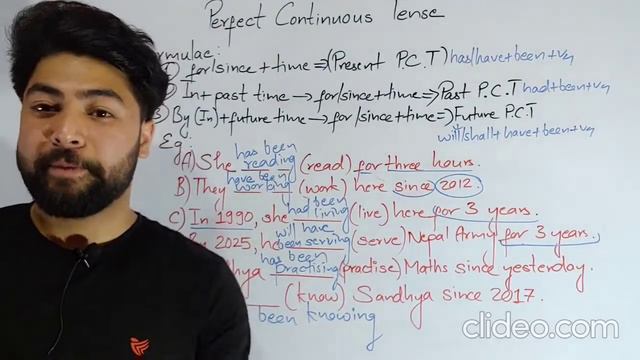 Perfect Continuous Tense
ormulae:
① for/since + time ⇒ (Present P.C.T) has/have + been + v4
② In + past time → for/since + time ⇒ Past P.C.T had + been + v4
③ By (In) + future time → for/since + time ⇒ Future P.C.T
will/shall + have + been + v4
Eg:
has been
A) She reading (read) for three hours.
have been
B) They working (work) here since 2012.
had been
C) In 1990, she living (live) here for 3 years.
will have
2025, he been serving (serve) Nepal Army for 3 years.
has been
dhya practising (practise) Maths since yesterday.
(know) Sandhya since 2017.
been knowing
clideo.com